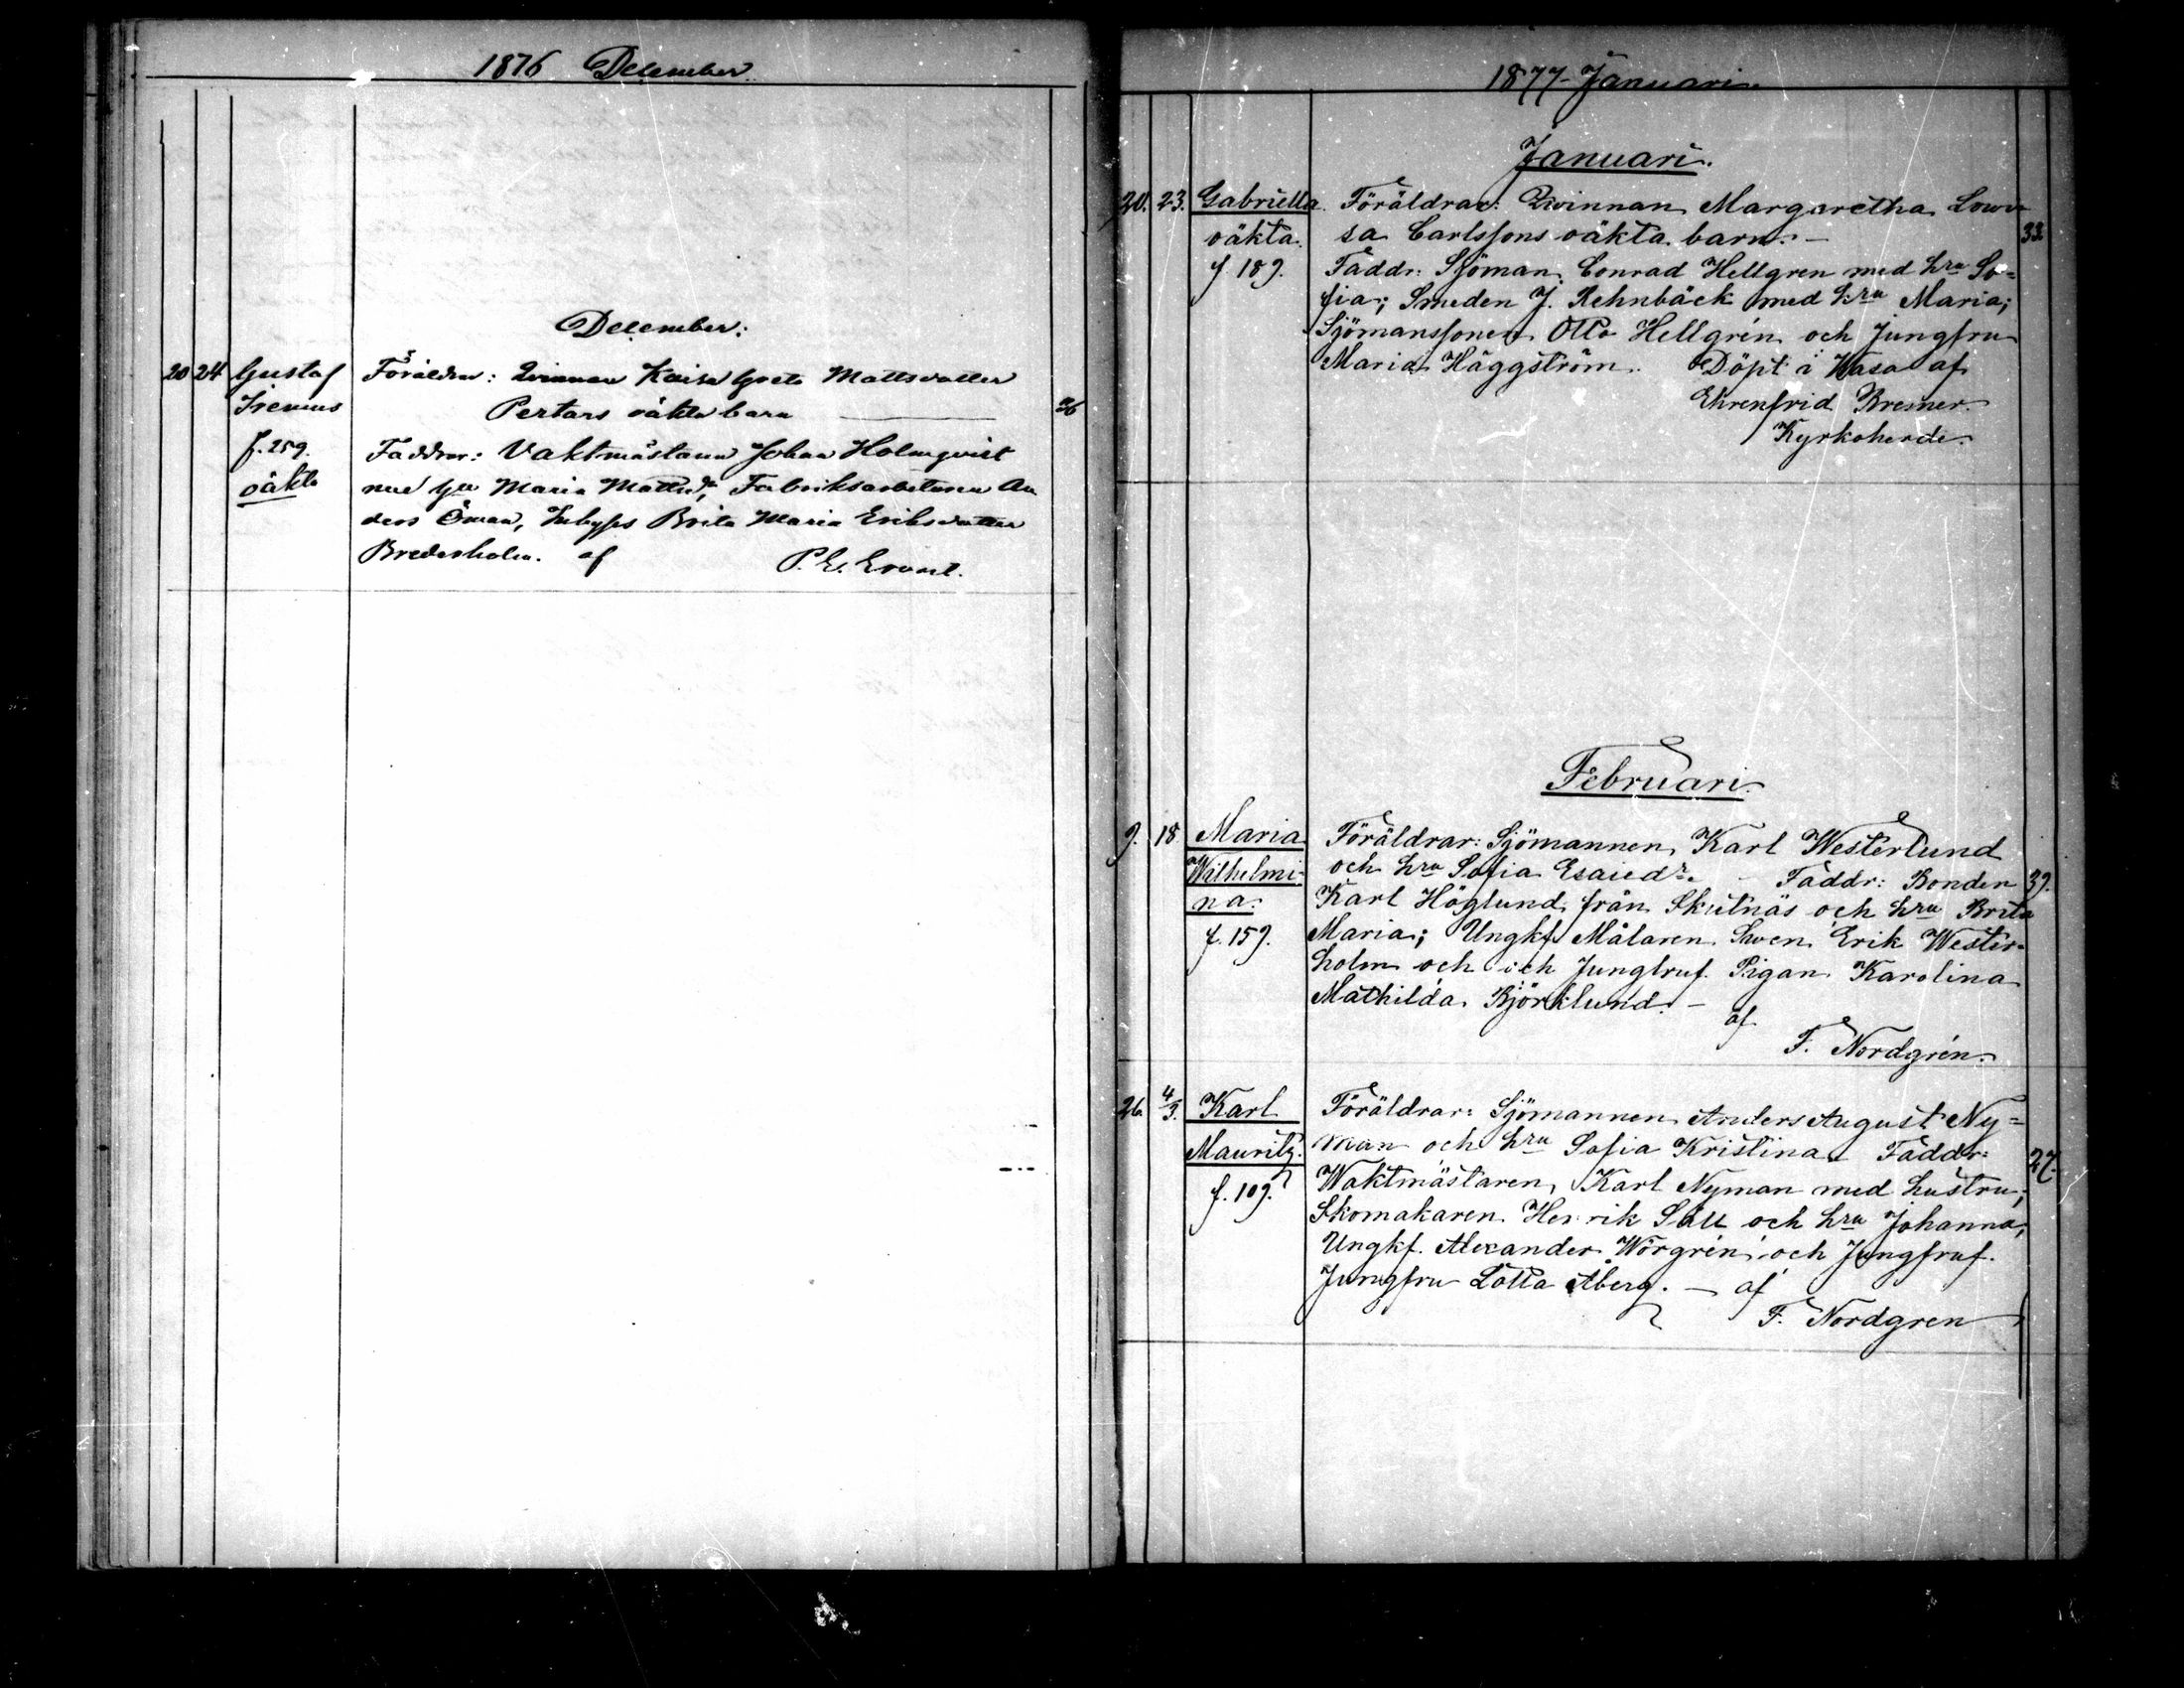 1876 December.
December:
20 24 Gustaf Föräldrar: Qvinnan Kaisa Greta Mattsdotter
Irenius Pertars oäkta barn 26
f. 259. Faddrar: Vaktmästaren Johan Holmqvist
oäkta med hu Maria Mattsdr, Fabriksarbetaren An
ders Öman, Inhyses Brita Maria Eriksdotter
Brederholm. af P. E.
1877 Januari.
Januari.
20. 23. Gabriella. Föräldrar: Qvinnan Margaretha Lowi
oäkta. sa Carlssons oäkta barn. – 33.
f 189. Faddr: Sjöman Conrad Hellgren med hru So=
fia; Smeden J. Rehnbäck med hru Maria;
Sjömanssonen Otto Hellgrén och Jungfru
Maria Häggström. Döpt i Wasa af
Ehrenfrid Bremer.
Kyrkoherde.
Februari.
9. 18. Maria Föräldrar: Sjömannen Karl Westerlund
Wilhelmi- och hru Sofia Esaiedr. – Faddr: Bonden 39.
na. Karl Höglund från Skutnäs och hru Brita
f. 159. Maria; Ungkf Målaren Swen Erik Wester-
holm och och Jungfruf. Pigan Karolina
Mathilda Björklund. –
af
F. Nordgrén.
26. 4/3. Karl Föräldrar: Sjömannen Anders August Ny=
Mauritz. man och hru Sofia Kristina. Faddr: 27.
f. 109. Waktmästaren Karl Nyman med hustru;
Skomakaren Henrik Säll och hru Johanna;
Ungkf. Alexander Wörgrén och Jungfruf.
Jungfru Lotta Åberg. – af
F. Nordgren